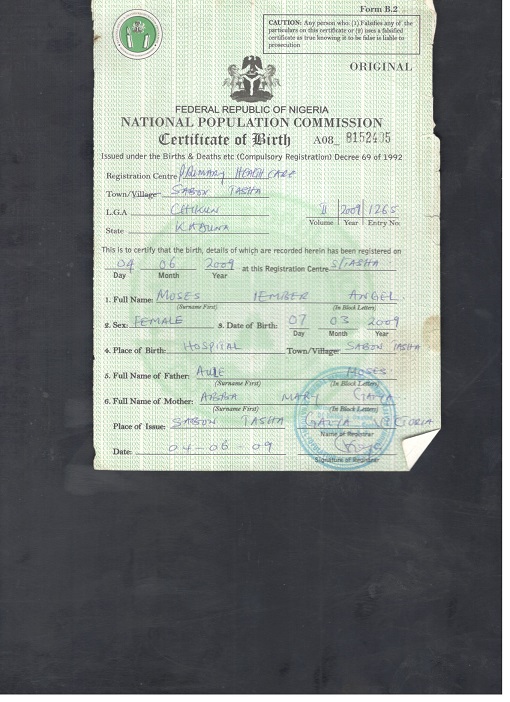 Form B.2
CAUTION: Any person who (1) Falsifies any of the
particulars on this certificate or (2) uses a falsified
certificate as true knowing it to be false is liable to
prosecution
ORIGINAL
FEDERAL REPUBLIC OF NIGERIA
NATIONAL POPULATION COMMISSION
Certificate of Birth A08_ 8152495
Issued under the Births & Deaths etc (Compulsory Registration) Decree 69 of 1992
Registration Centre PRIMARY HEALTH CARE
Town/Village SABON TASHA
L.G.A CHIKUN II 2009 1265
Volume Year Entry No.
State KADUNA
This is to certify that the birth, details of which are recorded herein has been registered on
04 06 2009 at this Registration Centre S/TASHA
Day Month Year
1. Full Name: MOSES IEMBER ANGEL
(Surname First) (In Block Letters)
2. Sex: FEMALE 3. Date of Birth: 07 03 2009
Day Month Year
4. Place of Birth: HOSPITAL Town/Village SABON TASHA
5. Full Name of Father: AULE MOSES
(Surname First) (In Block Letters)
6. Full Name of Mother: MARY
(Surname First) (In Block Letters)
Place of Issue: SABON TASHA GAIYA VICTORIA
Name of Registrar
Date: 04-06-09
Signature of Registrar